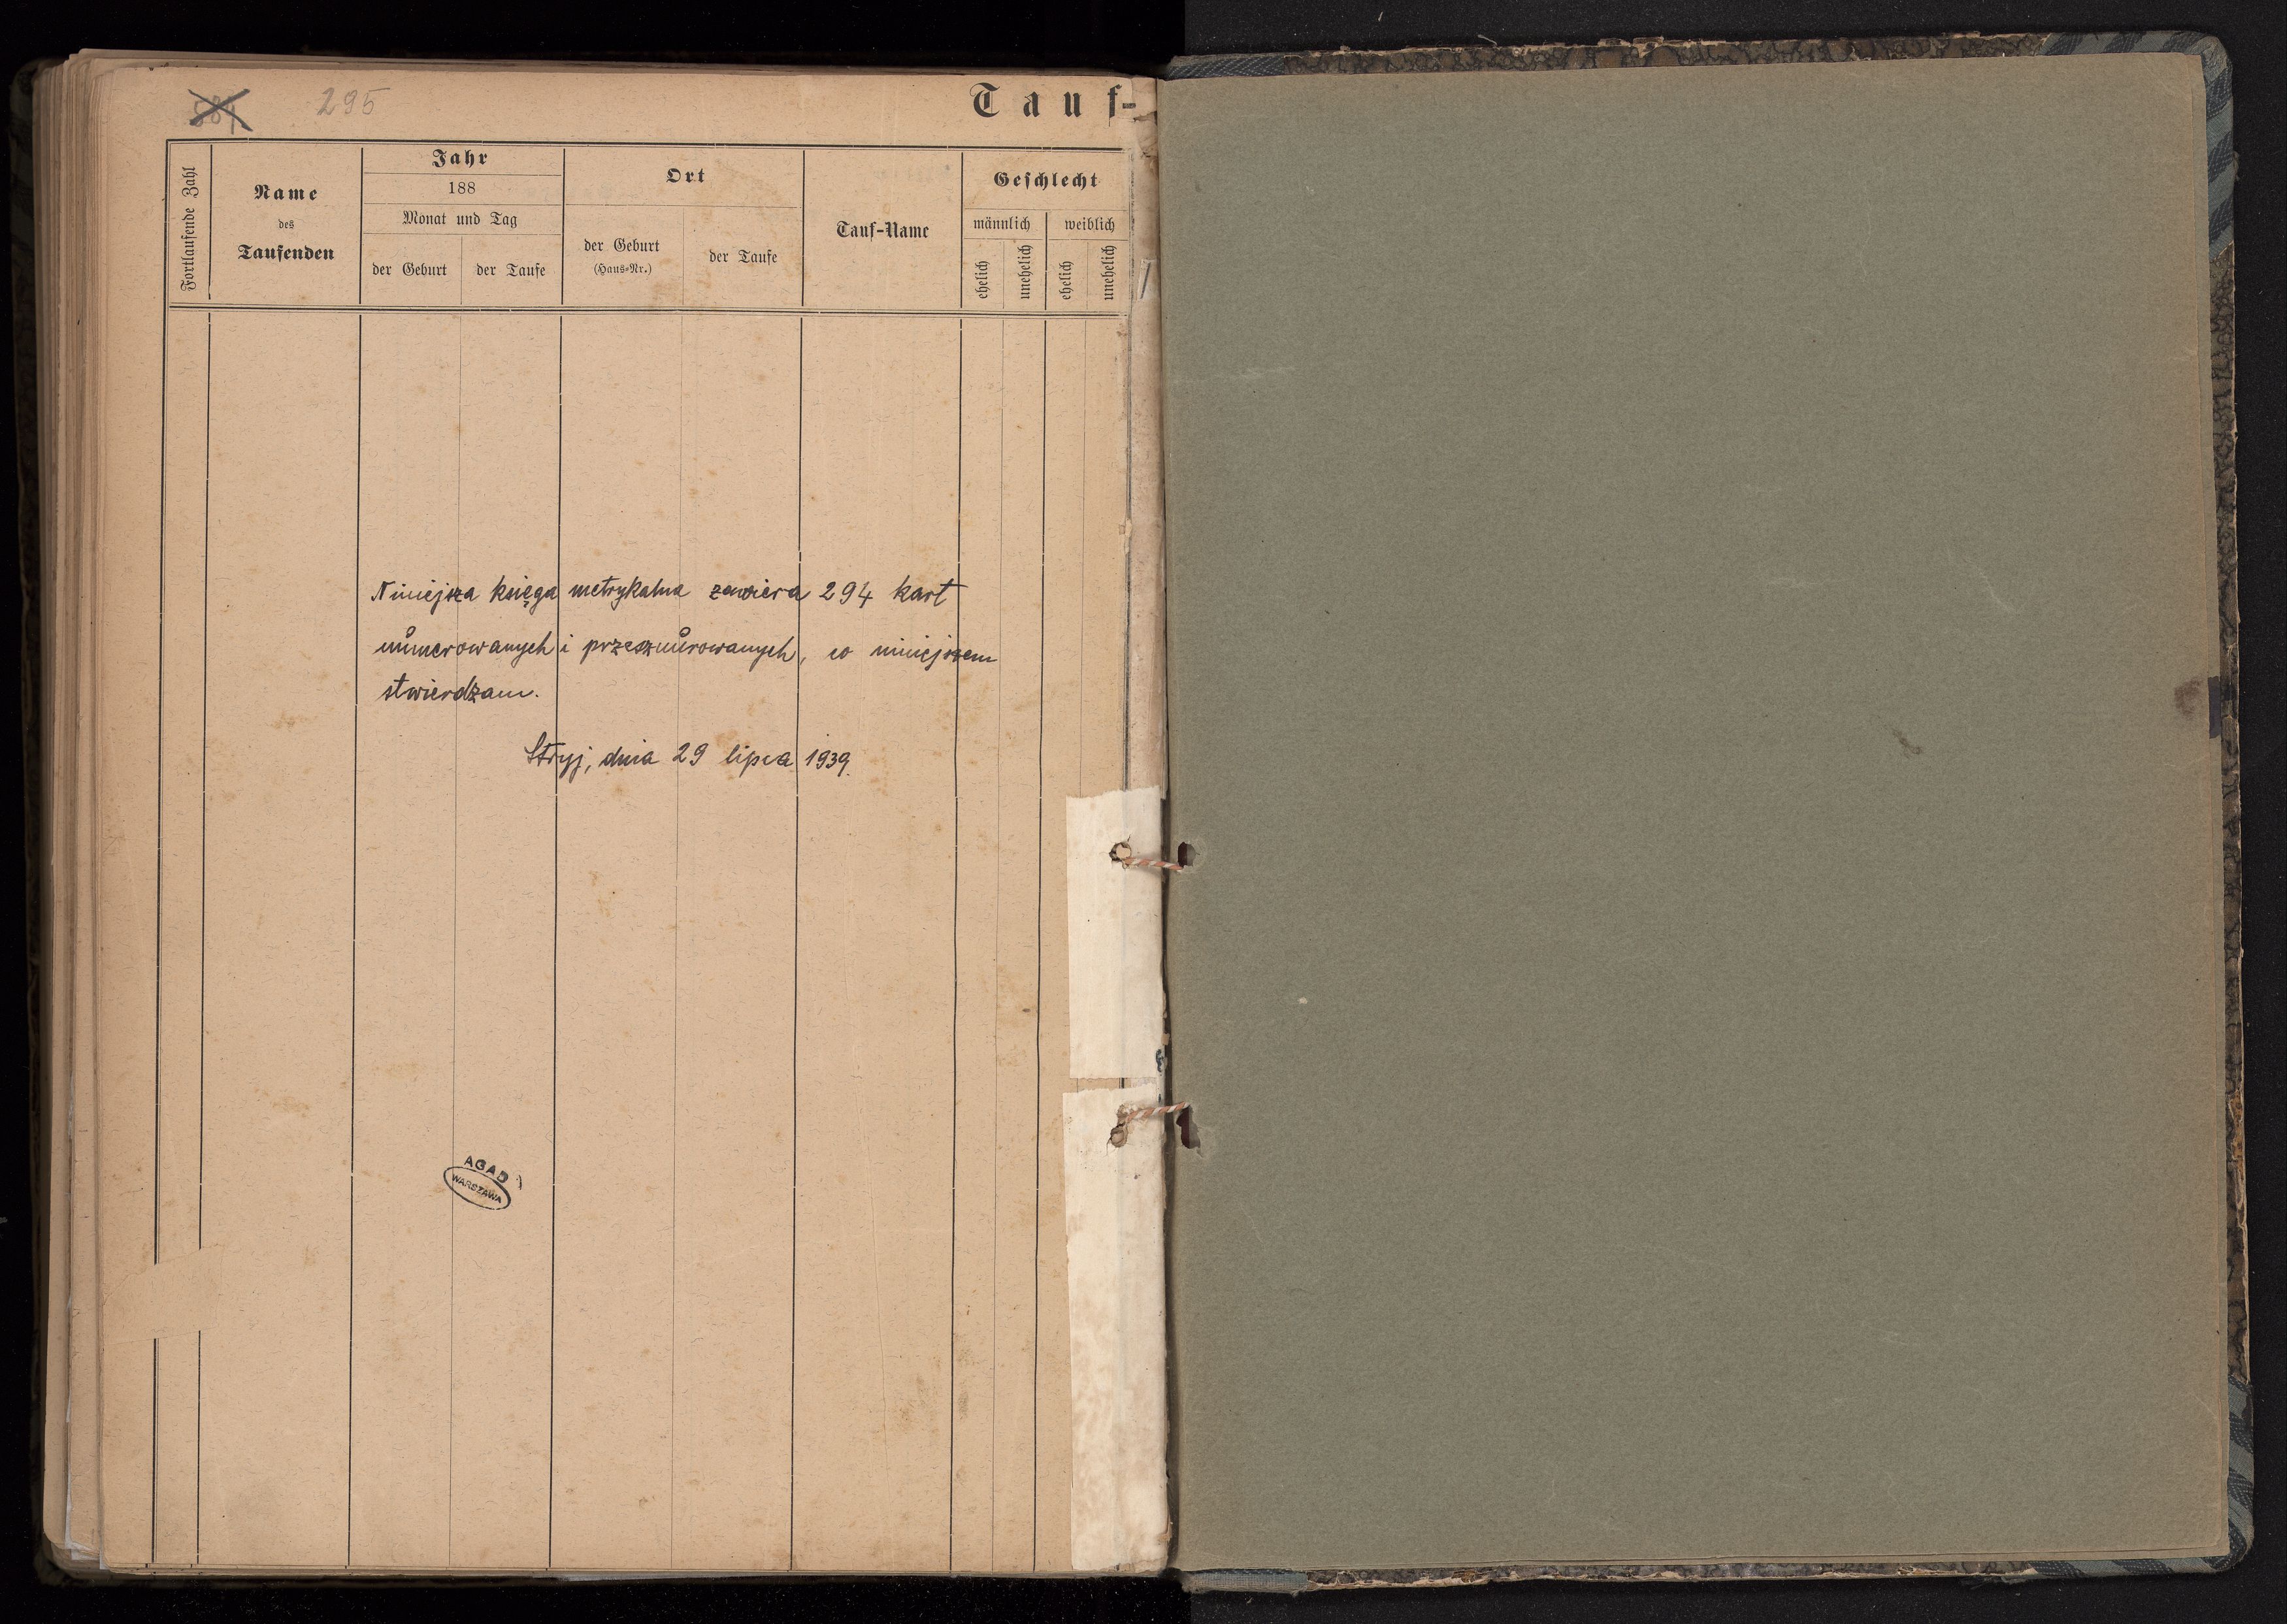 295
Tauf-
Fortlaufende Zahl
Name
des
Taufenden
Jahr
188
Monat und Tag
der Geburt
der Taufe
Ort
der Geburt
(Haus-Nr.)
der Taufe
Tauf-Name
Geschlecht
männlich
weiblich
ehelich
unehelich
ehelich
unehelich
Niniejsza księga metrykalna zawiera 294 kart
numerowanych i przesznurowanych, co niniejszem
stwierdzam.
Stryj, dnia 29 lipca 1939.
AGAD
WARSZAWA